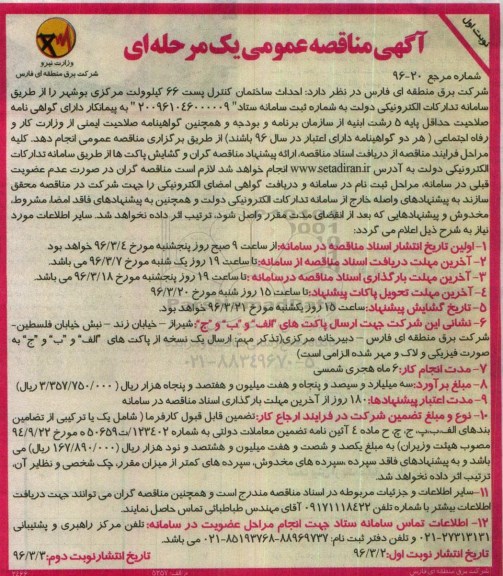 نوبت اول
آگهی مناقصه عمومی یک مرحله ای
وزارت نیرو
شرکت برق منطقه ای فارس
شماره مرجع ۲۰-۹۶
شرکت برق منطقه ای فارس در نظر دارد: احداث ساختمان کنترل پست ۶۶ کیلوولت مرکزی بوشهر را از طریق
سامانه تدارکات الکترونیکی دولت به شماره ثبت سامانه ستاد" ۲۰۰۹۶۱۰۴۶۰۰۰۰۰۹ " به پیمانکار دارای گواهی نامه
صلاحیت حداقل پایه ۵ رشت ابنیه از سازمان برنامه و بودجه و همچنین گواهینامه صلاحیت ایمنی از وزارت کار و
رفاه اجتماعی ( هر دو گواهینامه دارای اعتبار در سال ۹۶ باشند) از طریق برگزاری مناقصه عمومی انجام دهد. کلیه
مراحل فرایند مناقصه از دریافت اسناد مناقصه، ارائه پیشنهاد مناقصه گران و گشایش پاکت ها از طریق سامانه تدارکات
الکترونیکی دولت به آدرس www.setadiran.ir انجام خواهد شد لازم است مناقصه گران در صورت عدم عضویت
قبلی در سامانه، مراحل ثبت نام در سامانه و دریافت گواهی امضای الکترونیکی را جهت شرکت در مناقصه محقق
سازند به پیشنهادهای واصله خارج از سامانه تدارکات الکترونیکی دولت و همچنین به پیشنهادهای فاقد امضا، مشروط،
مخدوش و پیشنهادهایی که بعد از انقضای مدت مقرر واصل شود، ترتیب اثر داده نخواهد شد. سایر اطلاعات مورد
نیاز به شرح ذیل اعلام می گردد:
۱- اولین تاریخ انتشار اسناد مناقصه در سامانه: از ساعت ۹ صبح روز پنجشنبه مورخ ۹۶/۳/۴ خواهد بود.
۲- آخرین مهلت دریافت اسناد مناقصه از سامانه: تا ساعت ۱۹ روز یک شنبه مورخ ۹۶/۳/۷ می باشد.
۳- آخرین مهلت بارگذاری اسناد مناقصه در سامانه: تا ساعت ۱۹ روز پنجشنبه مورخ ۹۶/۳/۱۸ می باشد.
۴- آخرین مهلت تحویل پاکات پیشنهاد: تا ساعت ۱۵ روز شنبه مورخ ۹۶/۳/۲۰
۵- تاریخ گشایش پیشنهاد: ساعت ۱۵ روز یکشنبه مورخ ۹۶/۳/۲۱ خواهد بود.
۶- نشانی این شرکت جهت ارسال پاکت های "الف" و "ب" و "ج": شیراز – خیابان زند – نبش خیابان فلسطین-
شرکت برق منطقه ای فارس – دبیرخانه مرکزی(تذکر مهم: ارسال یک نسخه از پاکت های "الف" و "ب" و "ج" به
صورت فیزیکی و لاک و مهر شده الزامی است)
۷- مدت انجام کار: ۶ ماه هجری شمسی
۸- مبلغ برآورد: سه میلیارد و سیصد و پنجاه و هفت میلیون و هفتصد و پنجاه هزار ریال (۳/۳۵۷/۷۵۰/۰۰۰ ریال)
۹- مدت اعتبار پیشنهادها: ۱۸۰ روز از آخرین مهلت بارگذاری اسناد مناقصه در سامانه
۱۰- نوع و مبلغ تضمین شرکت در فرایند ارجاع کار: تضمین قابل قبول کارفرما ( شامل یک یا ترکیبی از تضامین
بندهای الف،ب،پ، ج، چ، ح ماده ۴ آئین نامه تضمین معاملات دولتی به شماره ۱۲۳۴۰۲/ت۵۰۶۵۹ ه مورخ ۹۴/۹/۲۲
مصوب هیئت وزیران) به مبلغ یکصد و شصت و هفت میلیون و هشتصد و نود هزار ریال (۱۶۷/۸۹۰/۰۰۰ ریال) می
باشد و به پیشنهادهای فاقد سپرده ،سپرده های مخدوش، سپرده های کمتر از میزان مقرر، چک شخصی و نظایر آن،
ترتیب اثر داده نخواهد شد.
۱۱- سایر اطلاعات و جزئیات مربوطه در اسناد مناقصه مندرج است و همچنین مناقصه گران می توانند جهت دریافت
اطلاعات بیشتر با شماره تلفن ۰۹۱۷۱۱۱۸۴۲۲ آقای مهندس طباطبائی تماس حاصل نمایند.
۱۲- اطلاعات تماس سامانه ستاد جهت انجام مراحل عضویت در سامانه: تلفن مرکز راهبری و پشتیبانی
۲۷۳۱۳۱۳۱-۰۲۱ و تلفن دفتر ثبت نام: ۸۸۹۶۹۷۳۷-۸۵۱۹۳۷۶۸-۰۲۱ می باشد.
تاریخ انتشار نوبت اول: ۹۶/۳/۲
تاریخ انتشار نوبت دوم: ۹۶/۳/۳
شرکت برق منطقه ای فارس
م الف: ۵۲۵۷